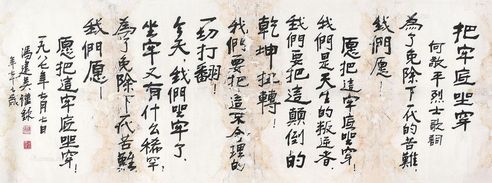 把牢底坐穿
何敬平烈士歌詞
為了免除下一代的苦難，
我們願！
願把這牢底坐穿！
我們是天生的叛逆者，
我們要把這顛倒的
乾坤扭轉！
我們要把這不合理的
一切打翻！
今天，我們坐牢了，
坐牢又有什么稀罕，
為了免除下一代苦難
我們愿—
愿把這牢底坐穿！
一九八七年七月七日
馮建吳謹録